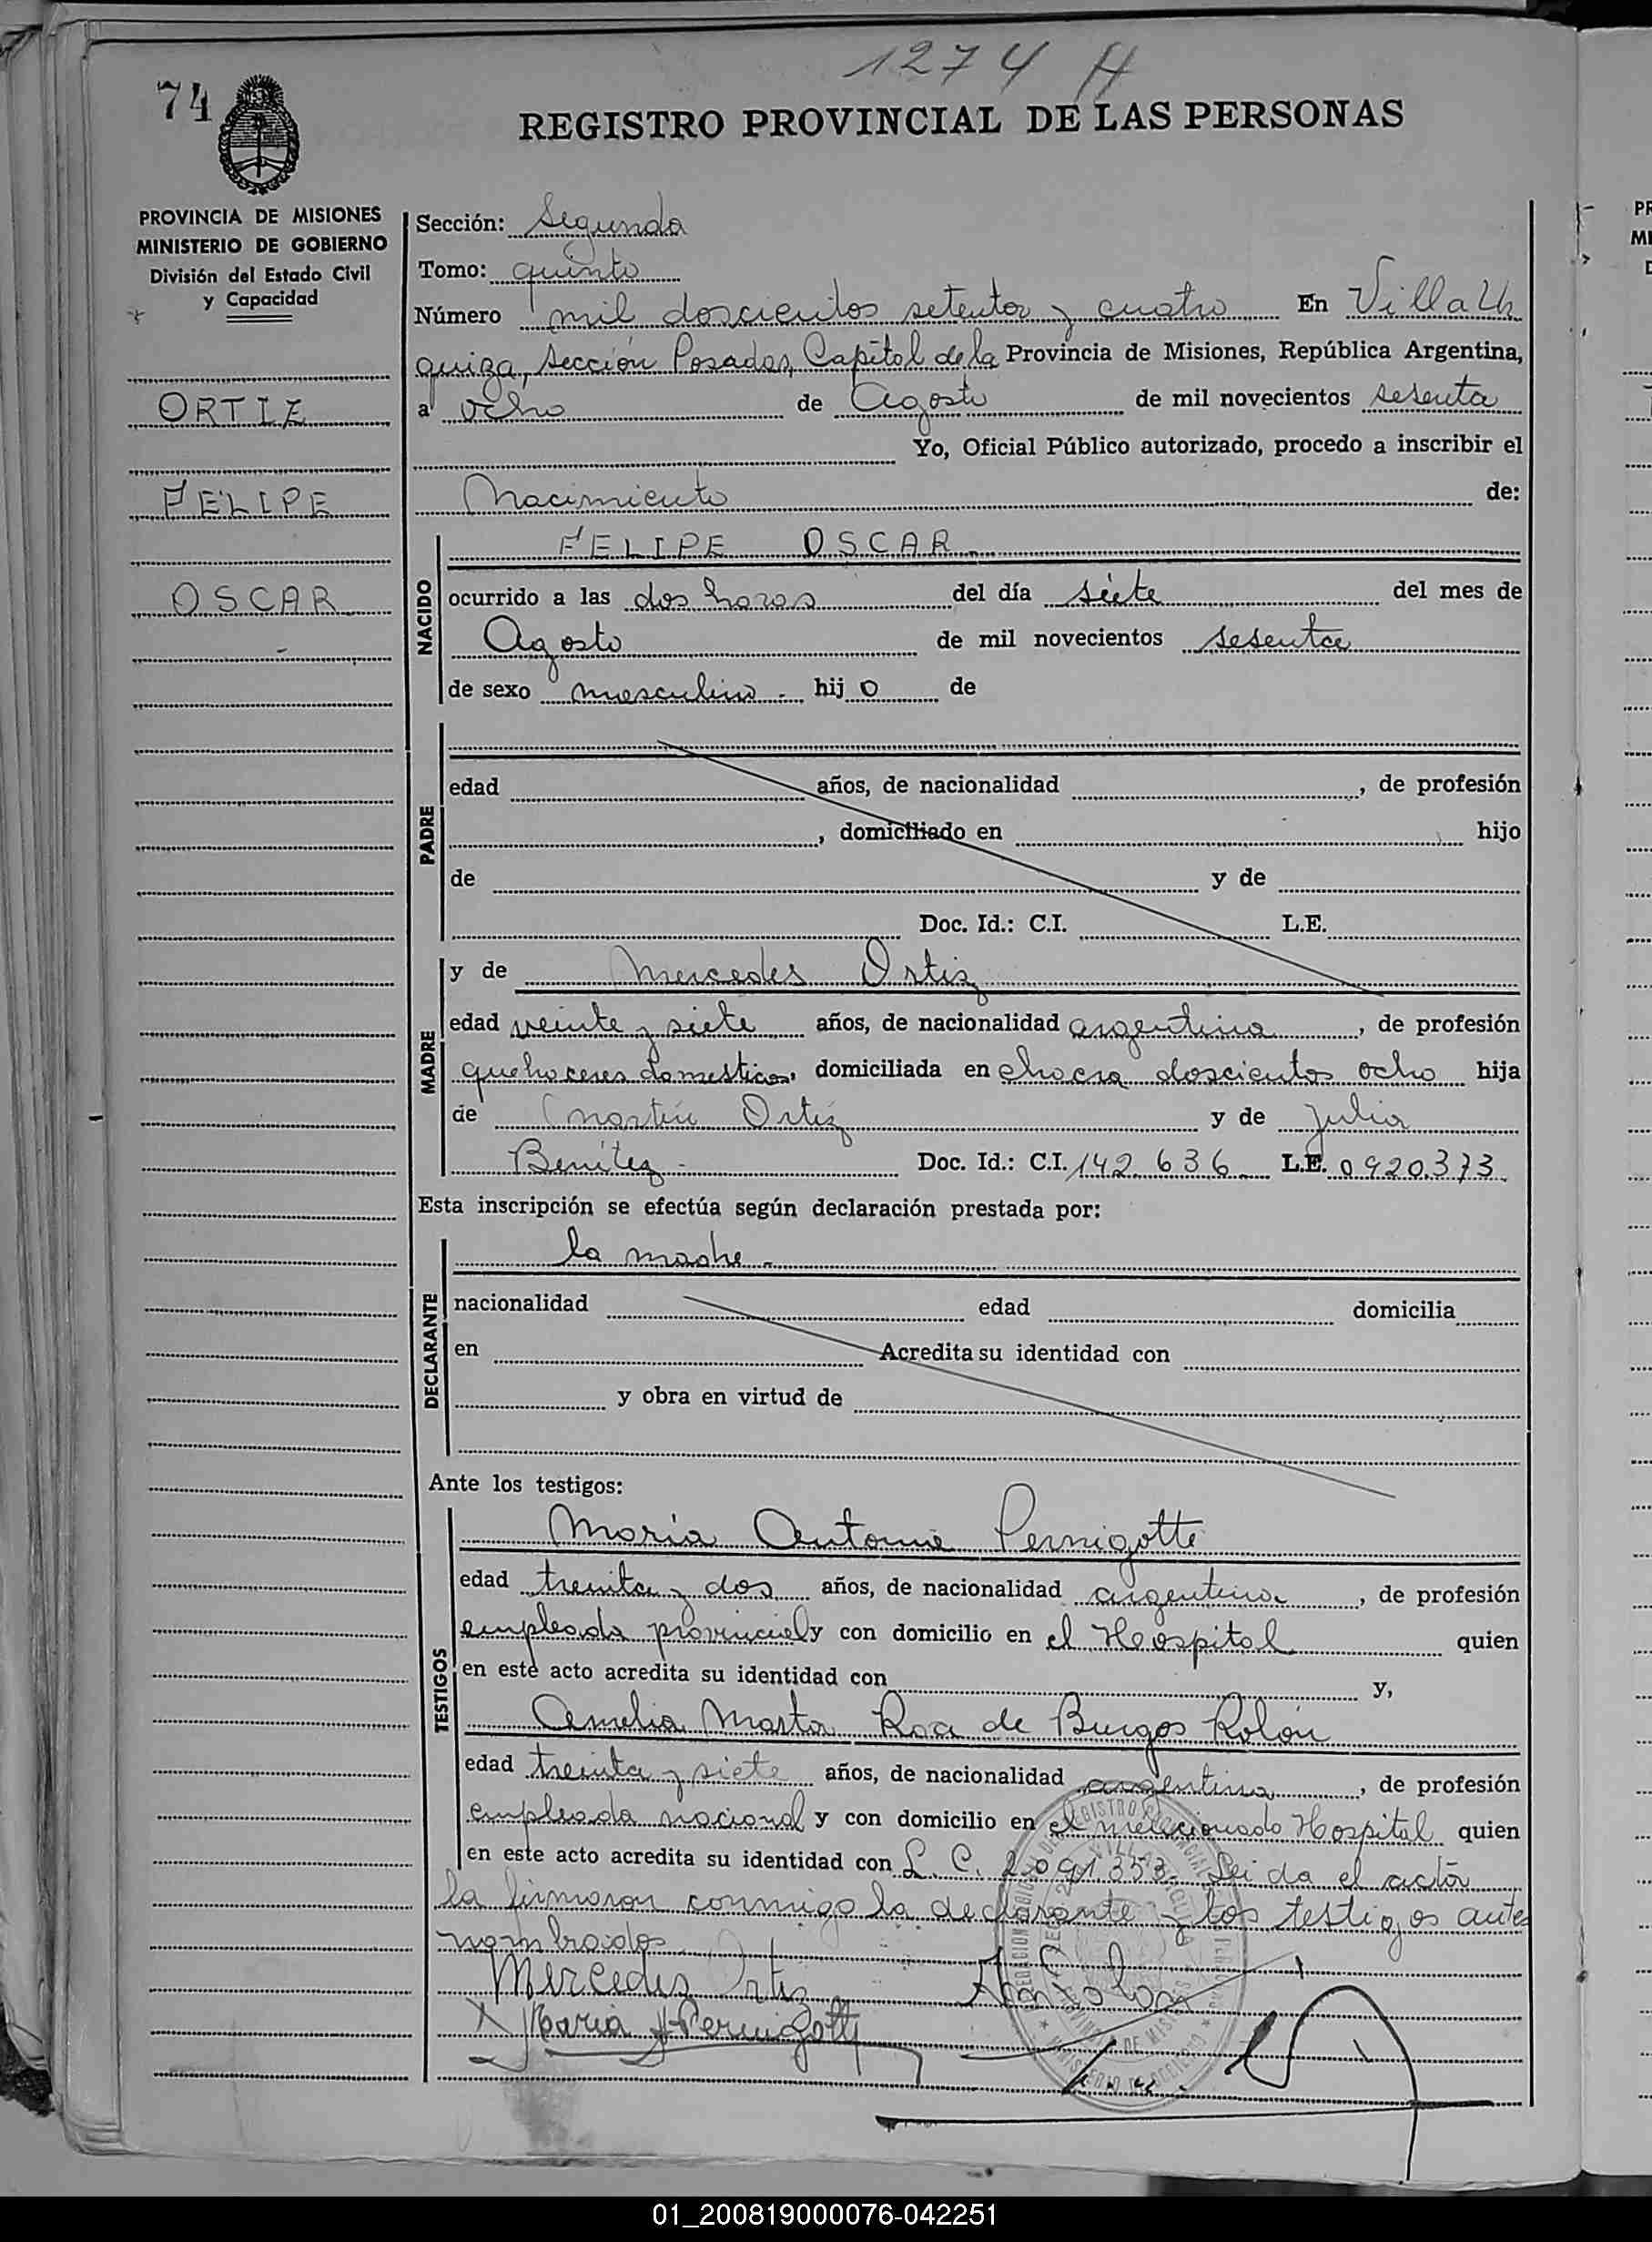 1274 H
74
REGISTRO PROVINCIAL DE LAS PERSONAS
PROVINCIA DE MISIONES
MINISTERIO DE GOBIERNO
División del Estado Civil
y Capacidad
ORTIZ
FELIPE
OSCAR
Sección: Segunda
Tomo: quinto
Número mil doscientos setenta y cuatro En Villa Ur
quiza, Sección Posadas, Capital de la Provincia de Misiones, República Argentina,
a ocho de Agosto de mil novecientos sesenta
Yo, Oficial Público autorizado, procedo a inscribir el
Nacimiento de:
NACIDO
FELIPE OSCAR
ocurrido a las dos horas del día siete del mes de
Agosto de mil novecientos sesenta
de sexo masculino.- hij o de
PADRE
edad años, de nacionalidad , de profesión
, domiciliado en hijo
de y de
Doc. Id.: C.I. L.E.
MADRE
y de Mercedes Ortiz
edad veinte y siete años, de nacionalidad argentina , de profesión
quehaceres domesticos, domiciliada en chacra doscientos ocho hija
de Martín Ortiz y de Julia
Benítez - Doc. Id.: C.I. 142.636 L.E. 0920.373
Esta inscripción se efectúa según declaración prestada por:
DECLARANTE
la madre.-
nacionalidad edad domicilia
en Acredita su identidad con
y obra en virtud de
Ante los testigos:
TESTIGOS
María Antonia Pernigotti
edad treinta y dos años, de nacionalidad argentina , de profesión
empleada provincial y con domicilio en el Hospital quien
en este acto acredita su identidad con y,
Amelia Marta Roa de Burgos Rolón
edad treinta y siete años, de nacionalidad argentina , de profesión
empleada nacional y con domicilio en el mencionado Hospital quien
en este acto acredita su identidad con L. C. 2.091.353. Leida el acta
la firmaron conmigo la declarante y los testigos antes
nombrados
Mercedes Ortiz
María A Pernigotti
01_200819000076-042251